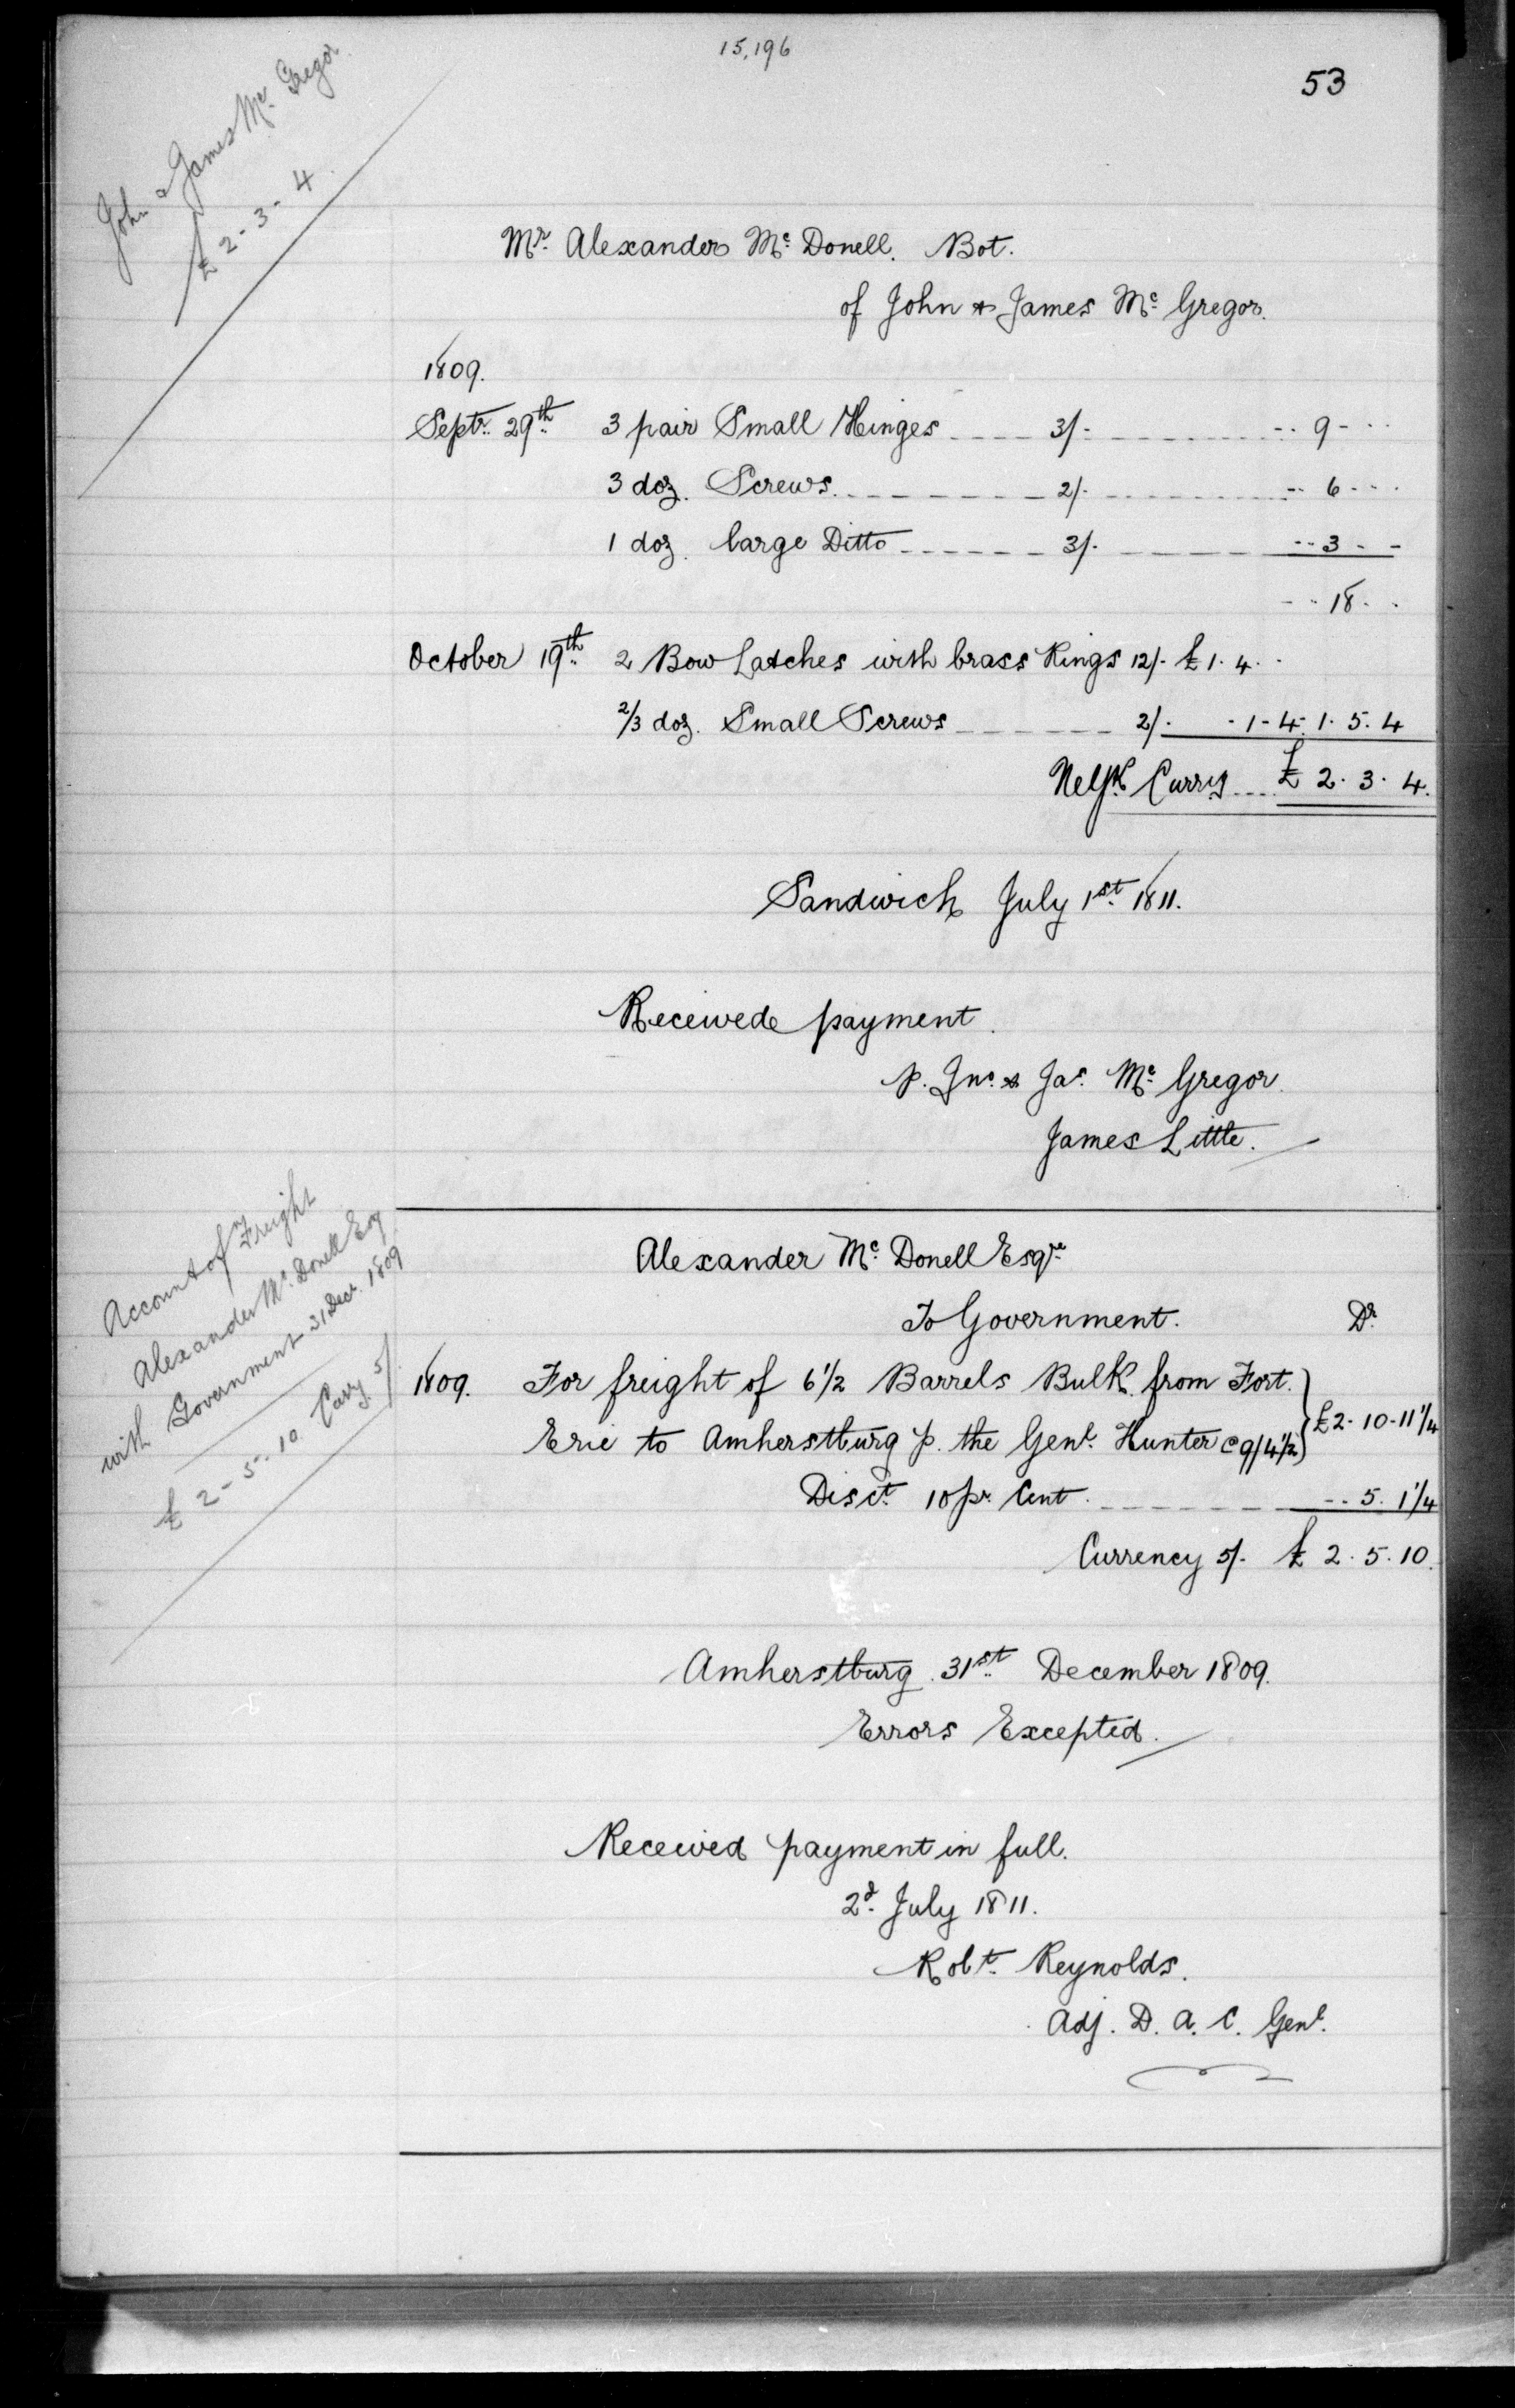 15,196
53
John & James Mc. Gregor.
£ 2-3-4
Mr. Alexander Mc. Donell. Bot.
of John & James Mc. Gregor.
1809.
Septr. 29th. 3 pair Small Hinges 3/- 9
3 doz. Screws 2/- 6
1 doz. large Ditto 3/- 3
18
October 19th. 2 Bow Latches with brass Rings 12/- £1.4
2/3 doz. Small Screws 2/- 1-4. 1.5.4
Curry £ 2.3.4.
Sandwich July 1st. 1811.
Receivede payment.
p. Jno. & Jas. Mc. Gregor.
James Little.
Account of Freight
Alexander Mc. Donell Esq
with Government 31 Decr. 1809
£ 2-5-10 Curry 5/
Alexander Mc. Donell Esqre.
To Government. Dr.
1809. For freight of 6 1/2 Barrels Bulk from Fort.
Erie to Amherstburg p. the Genl. Hunter @ 9/4 1/2 £2-10-11 1/4
Disct. 10 pr. Cent. 5. 1 1/4
Currency 5/- £ 2.5.10.
Amherstburg 31st. December 1809.
Errors Excepted.
Received payment in full.
2d. July 1811.
Robt. Reynolds.
Adj. D. A. C. Genl.